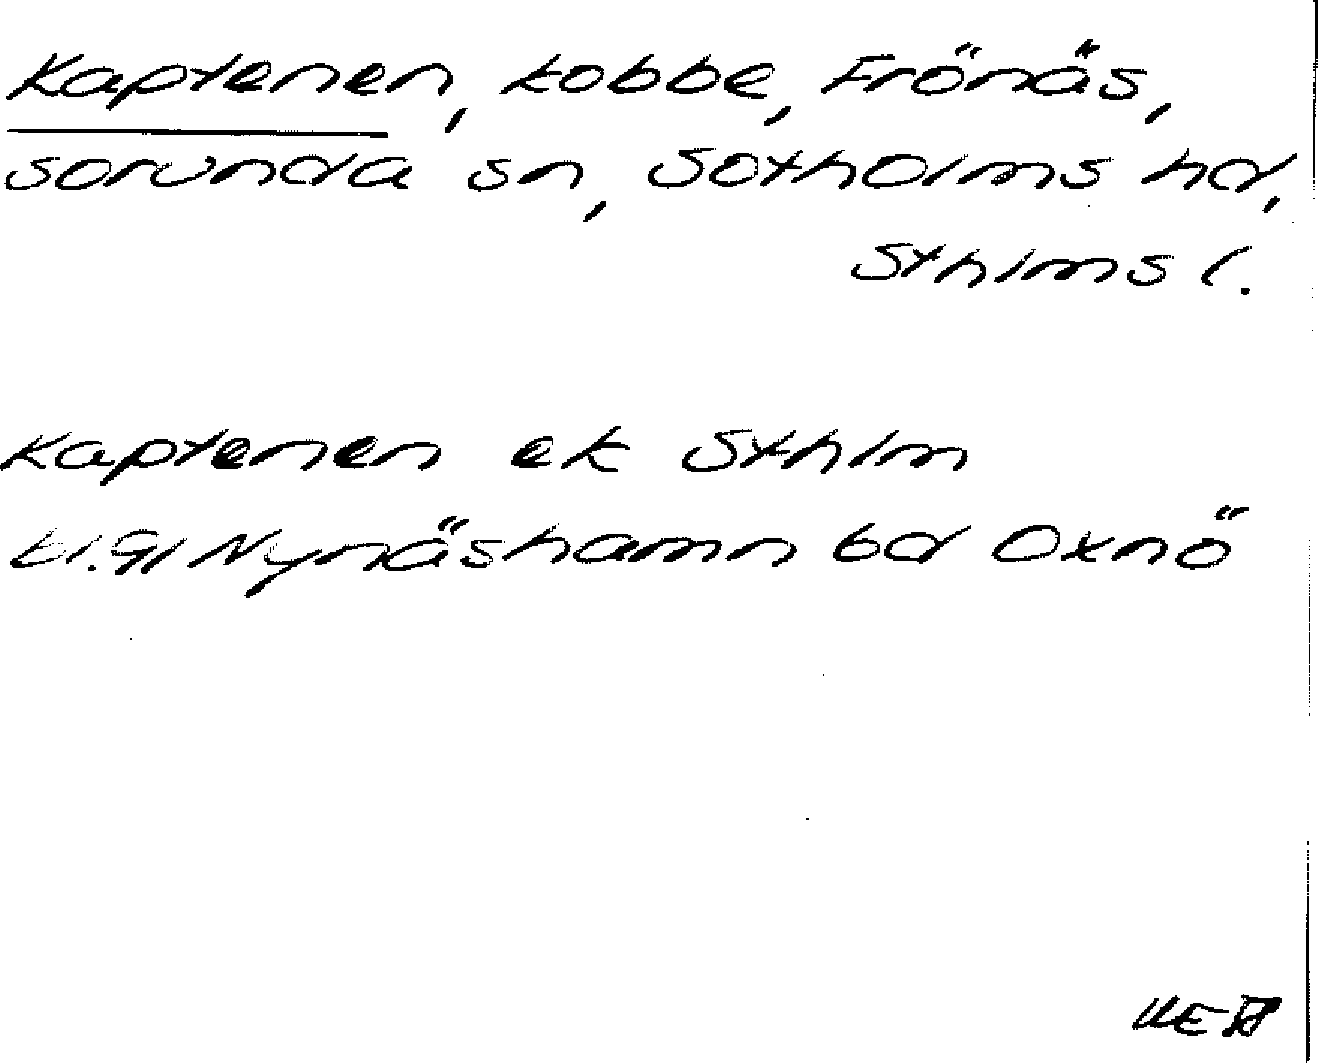 Kaptenen, kobbe, Frönäs,
Sorunda sn, Sotholms hd,
Sthlms l.
Kaptenen ek Sthlm
bl.91 Nynäshamn bd Oxnö